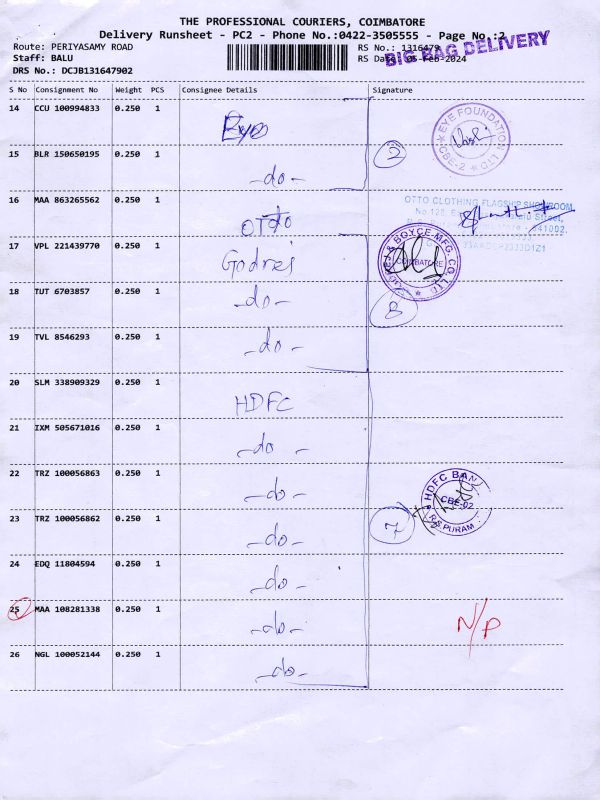 THE PROFESSIONAL COURIERS, COIMBATORE
Delivery Runsheet - PC2 - Phone No.:0422-3505555 - Page No.:2
Route: PERIYASAMY ROAD
RS No.: 1316479
BIG BAG DELIVERY
Staff: BALU
RS Date: 05-Feb-2024
DRS No.: DCJB131647902
S No Consignment No Weight PCS Consignee Details Signature
14 CCU 100994833 0.250 1 Eye
EYE FOUNDATION
CBE-2
2
15 BLR 150650195 0.250 1 -do-
16 MAA 863265562 0.250 1 OTTO
OTTO CLOTHING FLAGSHIP SHOWROOM
17 VPL 221439770 0.250 1 Godrej
& BOYCE MFG. CO. LTD
COIMBATORE
18 TUT 6703857 0.250 1 -do-
8
19 TVL 8546293 0.250 1 -do-
20 SLM 338909329 0.250 1 HDFC
21 IXM 505671016 0.250 1 -do-
22 TRZ 100056863 0.250 1 -do-
HDFC BANK
CBE-02
R.S.PURAM
23 TRZ 100056862 0.250 1 -do-
7
24 EDQ 11804594 0.250 1 -do-
25 MAA 108281338 0.250 1 -do-
N/P
26 NGL 100052144 0.250 1 -do-